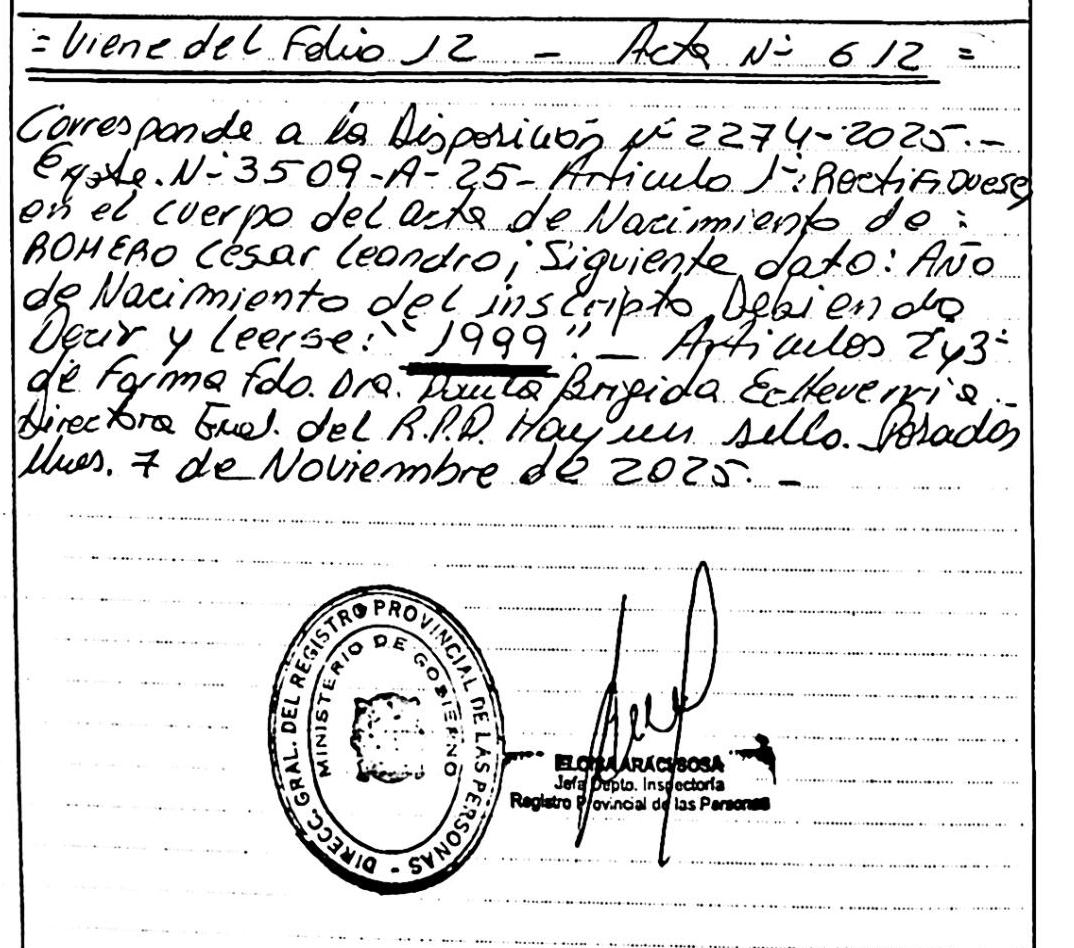 = Viene del Folio 12 - Acta Nº 612 =
Corresponde a la Disposición Nº 2274-2025.-
Expte. Nº 3509-A-25- Articulo 1º: Rectifiquese
en el cuerpo del acta de Nacimiento de:
ROMERO Cesar Leandro; Siguiente dato: AÑO
de Nacimiento del inscripto Debiendo
Decir y Leerse: "1999". — Articulos 2y3º
de Forma Fdo. Dra. Brigida Echeverria.-
Directora Gral. del R.P.P. Hay un sello. Posadas
Mnes. 7 de Noviembre de 2025. -
DIRECC. GRAL. DEL REGISTRO PROVINCIAL DE LAS PERSONAS -
MINISTERIO DE GOBIERNO
SOSA
Jefa Dpto. Inspectoría
Registro Provincial de las Personas